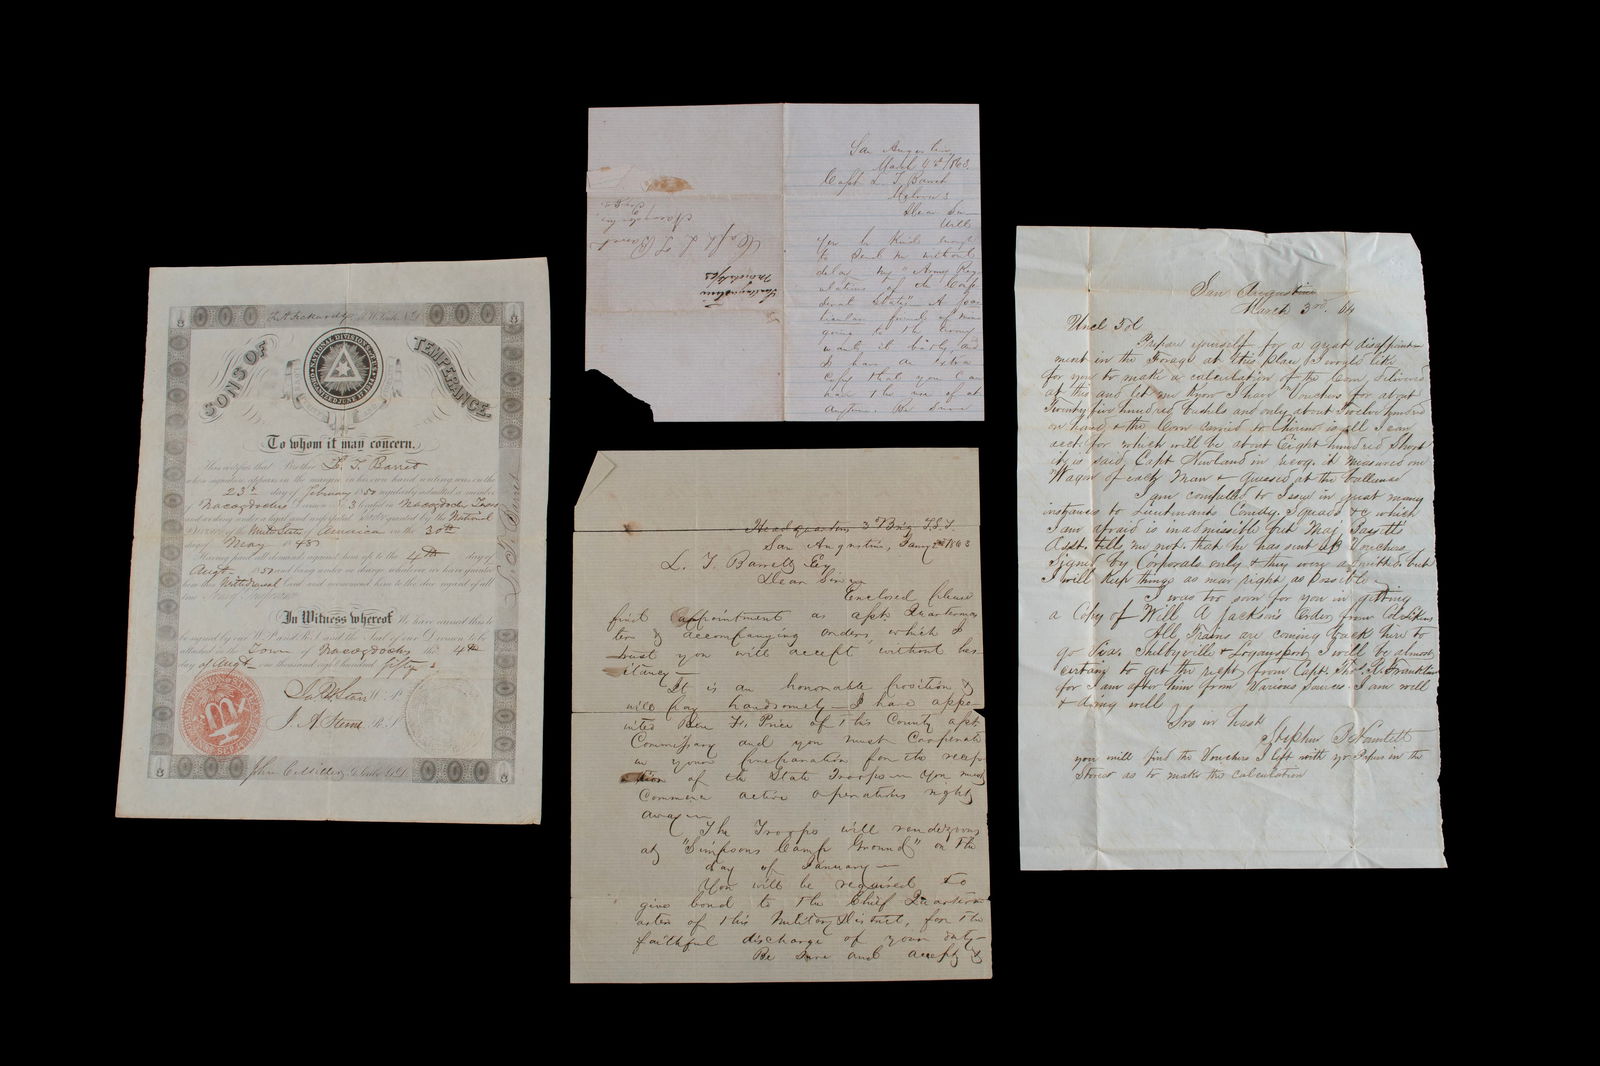 SONS OF TEMPERANCE.
NATIONAL DIVISION
ORGANIZED JUNE
To whom it may concern.
This certifies that Brother L. T. Barret
whose signature appears in the margin in his own hand writing was on the
23rd day of February 1850 regularly admitted a member
of Nacogdoches Division No. 3 located in Nacogdoches Texas
and working under a legal and unforfeited Charter granted by the National
Division of the United States of America on the 30th
day of May 1848
Having paid all demands against him up to the 4th day of
Augt 1850 and being under no charge whatever we have granted
him this Withdrawal Card and recommend him to the due regard of all
true Sons of Temperance.
In Witness whereof We have caused this to
be signed by our W.P. and R.S. and the Seal of our Division to be
attached in the Town of Nacogdoches this 4th
day of Augt one thousand eight hundred fifty
W. P.
R. S.
L. T. Barret
San Augustine
March 1863.
Capt L. T. Barret
Dear Sir
Will
you be kind enough
to send me without
delay my "Army Reg
ulations of the Conf
deral States" A
friend of mine
going to the army
wants it badly, and
I have a extra
copy that you can
have the use of at
anytime. Be sure
Capt L. T. Barret
San Augustine
Head quarters 3 Brig T.S.T.
San Augustine, Jany 2 1863
L. T. Barrett Esq
Dear Sir
Enclosed please
find appointment as asst Quartermas
ter & accompanying orders, which I
trust you will accept without hes
itancy—
It is an honorable position &
will pay handsomely— I have appo-
inted Ben F. Price of this County asst
Commissary and you must Cooperate
in your preparation for the recep
tion of the State Troops— You must
Commence active operations right
away—
The Troops will rendezvous
at "Simpsons Camp Ground" on the
day of January—
You will be required to
give bond to the Chief Quarterm
aster of this Military District, for the
faithful discharge of your duty—
Be sure and accept &
San Augustine
March 3rd. 64
Uncl
Prepare yourself for a great disappoint-
ment in the Forage at this place, I would like
for you to make a calculation of the Corn delivered
at this and let me know I have Vouchers for about
Twenty five hundred bushels and only about Twelve hundred
on hand & the Corn carried to is all I can
acct. for which will be about Eight hundred Short
it is said Capt Newland in recog. it measured one
Wagon of each man & guessed at the ballance
I am compelled to Issue in great many
instances to Lieutenants Comdg. Squads &c which
I am afraid is inadmissible but Maj
Asst. tells me not. that he has sent up Vouchers
Signed by Corporals only & they were admitted. but
I will keep things as near right as possible
I was too soon for you in getting
a Copy of Will A Jackson's Order from
All Trains are coming back here to
go via. Shelbyville & Logansport, I will be almost
certain to get the rept. from Capt. Thos. Franklin
for I am after him from various sources. I am well
& doing well
Yrs in hast
Stephen
you will find the Vouchers I left with yr Papers in the
Store so as to make the calculation